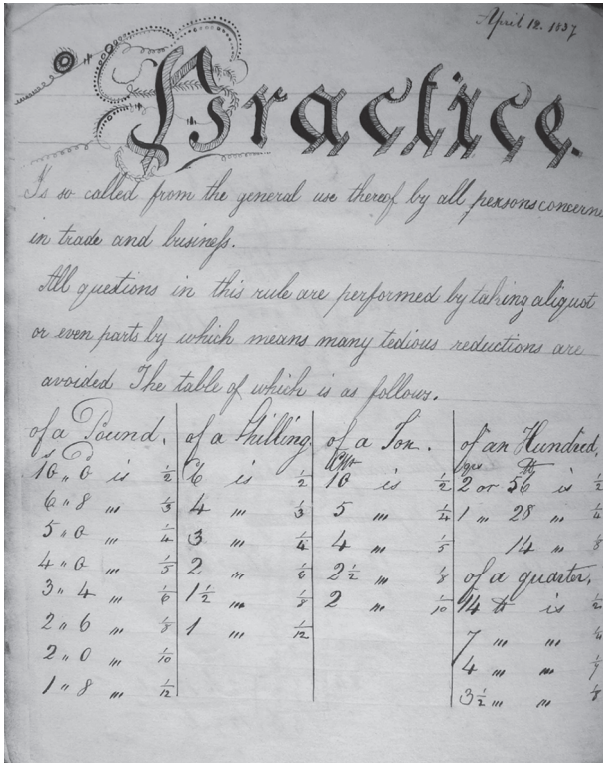 April 12. 1837
Practice.
Is so called from the general use thereof by all persons concerne
in trade and business.
All questions in this rule are performed by taking aliquot
or even parts by which means many tedious reductions are
avoided The table of which is as follows.
of a Pound.
s d
10 „ 0 is 1/2
6 „ 8 „ 1/3
5 „ 0 „ 1/4
4 „ 0 „ 1/5
3 „ 4 „ 1/6
2 „ 6 „ 1/8
2 „ 0 „ 1/10
1 „ 8 „ 1/12
of a Shilling.
6 is 1/2
4 „ 1/3
3 „ 1/4
2 „ 1/6
1 1/2 „ 1/8
1 „ 1/12
of a Ton.
Cwt
10 is 1/2
5 „ 1/4
4 „ 1/5
2 1/2 „ 1/8
2 „ 1/10
of an Hundred,
qrs lb
2 or 56 is 1/2
1 „ 28 „ 1/4
14 „ 1/8
of a quarter,
14 lb is 1/2
7 „ „ 1/4
4 „ „ 1/7
3 1/2 „ „ 1/8